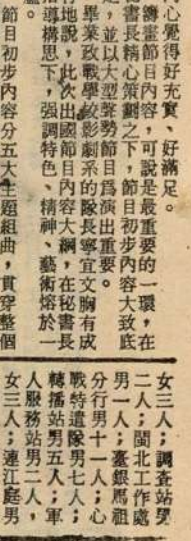 內心覺得好充實、好滿足。
籌畫節目內容，可說是最重要的一環，在
書長精心策劃之下，節目初步內容大致底
，並以大型聲勢節目爲演出重要。
畢業政戰學校影劇系的隊長寧宜文胸有成
地說，此次出國節目內容大綱，在秘書長
指導構思下，強調特色、精神、藝術熔於一
爐。
節目初步內容分五大主題組曲，貫穿整個
女三人；調查站男
二人；閩北工作處
男一人；臺銀馬祖
分行男十一人；心
戰特遣隊男七人；
轉播站男五人；軍
人服務站男二人，
女三人；連江庭男